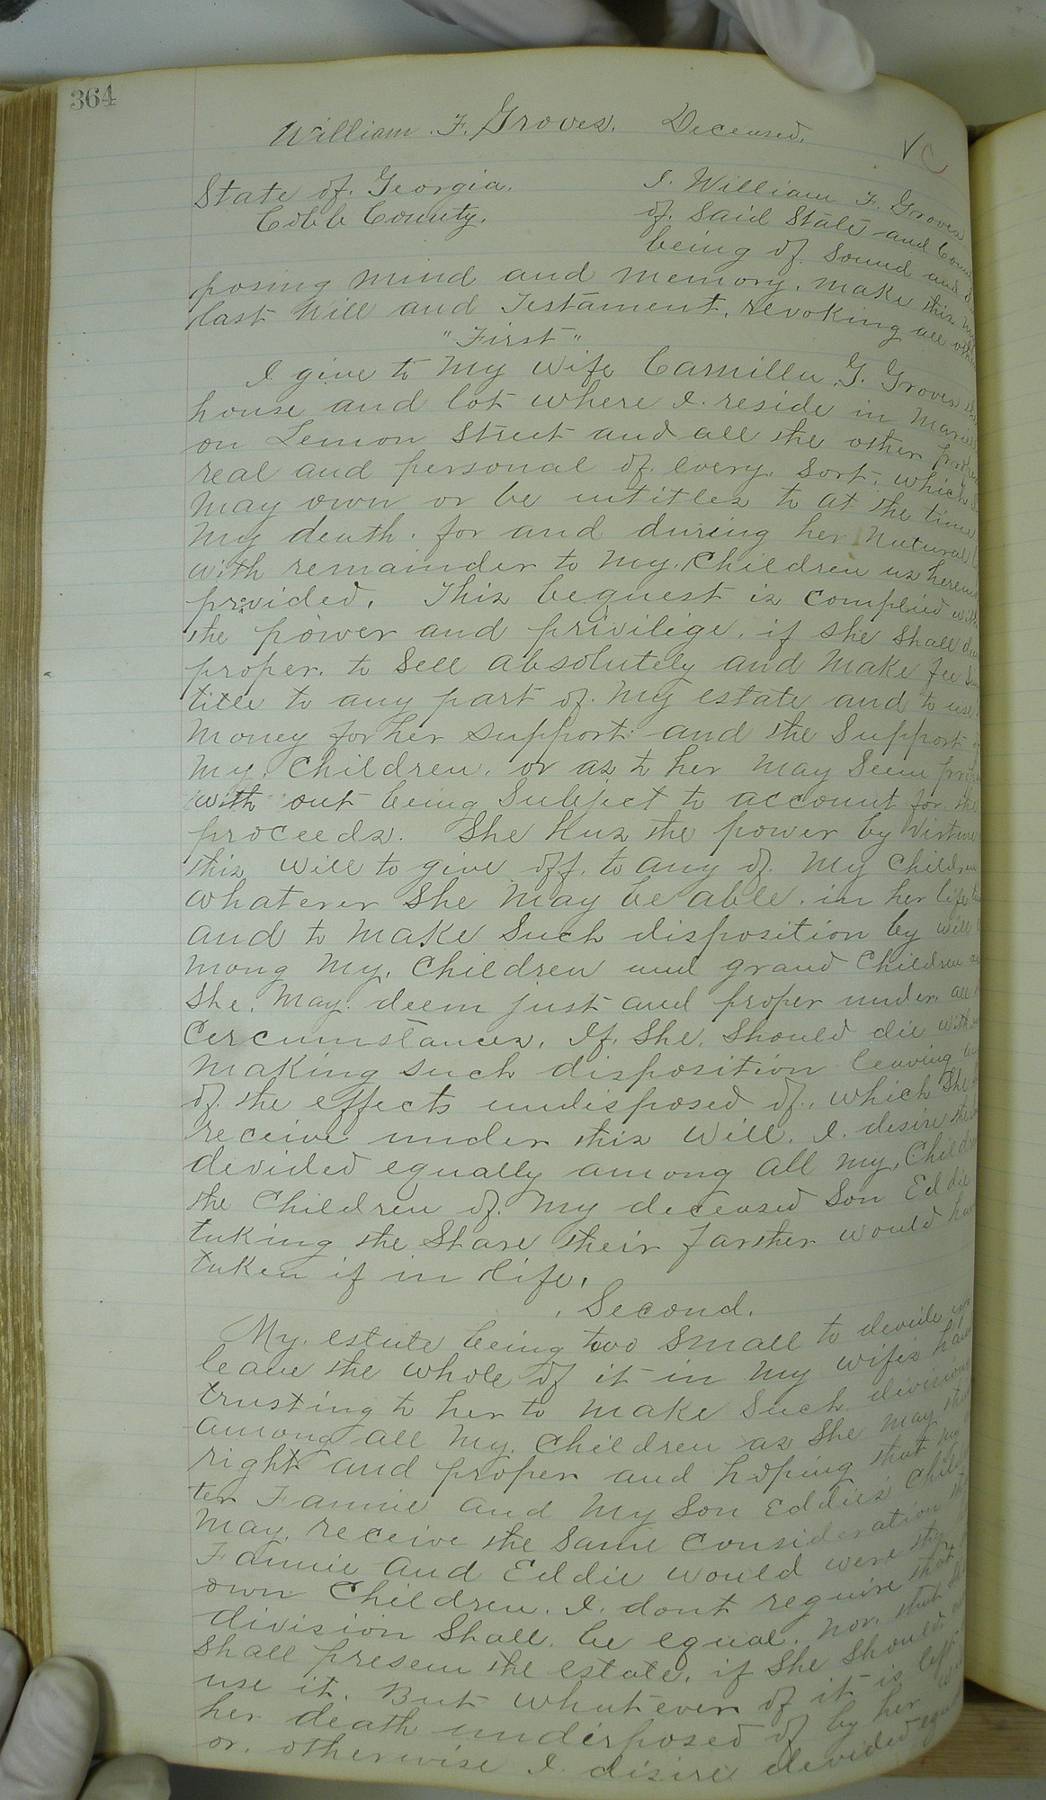 364
William. F. Groves. Deceased.
V C
State of. Georgia.
Cobb County.
I. William F. Groves
of. Said State and
being of. Sound and
posing mind and memory. make this
last Will and Testament. revoking all
"First"
I give to My wife Camilla. G. Groves
house and lot where I. reside in
on Lemon Street and all the other
real and personal of. every. Sort. which
May own or be intitles to at the time
My death. for and during her Natural
with remainder to My. Children as
provided. This bequest is complied
the power and privilige. if she shall
proper. to Sell absolutely and Make fee
title to any part of. My estate and to use
Money for her support and the Support
My. Children. or as to her May Seem
with out being Subject to account for the
proceeds. She has the power by Virtue
this will to give off. to any of. My Children
whaterer She May be able. in her life
and to Make Such disposition by will
mong My. Children and grand Children
She. May. deem just and proper under. all
Cercumstances. If. She. Should die
Making such disposition leaving
of. the effects undisposed of. which She
receive under this Will. I. desire
devided equally among all My.
the Children of. My deceased Son Eddie
taking the Share their Farther would
taken if in life.
Second.
My. estate being two Small to devide
leave the whole of it in My wifes
trusting to her to Make Such division
among all My. Children as She May
right and proper and hoping that
ter Fannie and My Son Eddies
May. receive the Same Consideration
Fannie and Eddie would were
own Children. I. dont require that
division Shall. be equal. nor. that
Shall preserve the estate. if She Should
use it. But whatever of it is
her death undisposed of by her
or. otherwise I. disire devided